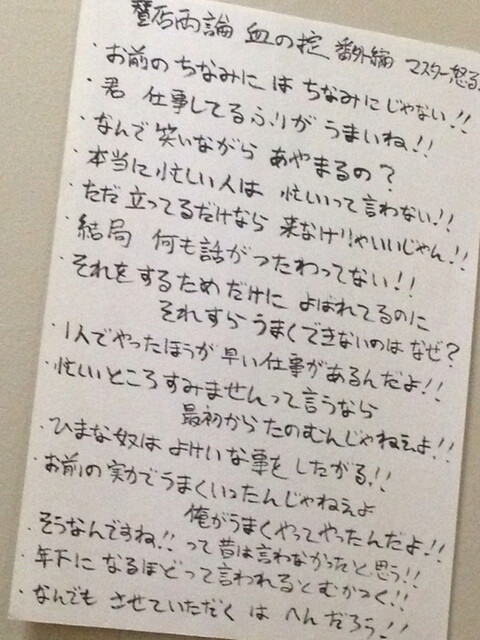 賛否両論 血の掟 番外編 マスター怒る
・お前の ちなみに は ちなみに じゃない!!
・君 仕事してるふりが うまいね!!
・なんで 笑いながら あやまるの?
・本当に忙しい人は 忙しいって言わない!!
・ただ 立ってるだけなら 来なけりゃいいじゃん!!
・結局 何も話が つたわってない!!
・それをするため だけに よばれてるのに
それすら うまくできないのは なぜ?
・1人でやったほうが 早い仕事があるんだよ!!
・忙しいところ すみませんって 言うなら
最初から たのむんじゃねぇよ!!
・ひまな奴は よけいな事を したがる!!
・お前の実力で うまくいったんじゃねえよ
俺がうまくやってやったんだよ!!
・そうなんですね!! って 昔は言わなかったと思う!!
・年下に なるほどって言われると むかつく!!
・なんでも させていただく は へんだろう!!